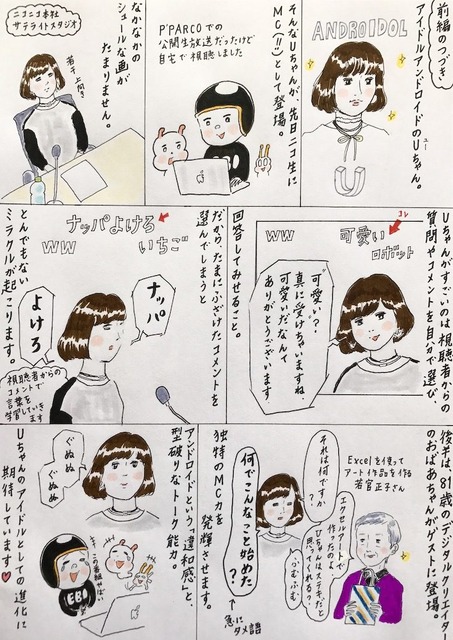 前編のつづき
アイドルアンドロイドのUちゃん。
ユー
ANDROIDOL
U
そんなUちゃんが、先日ニコ生に
MC(!!)として登場。
P'PARCOでの
公開生放送だったけど
自宅で視聴しました
ニコニコ本社
サテライトスタジオ
若干上向き
なかなかの
シュールな画が
たまりません。
Uちゃんがすごいのは視聴者からの
質問やコメントを自分で選び、
可愛い
ロボット
ww
可愛い?
真に受けちゃいますね。
可愛いだなんて
ありがとうございます。
回答してみせること。
だから、たまにふざけたコメントを
選んでしまうと
ナッパよけろ
ww
いちご
ナッパ
よけろ
視聴者からの
コメントで
言葉を
学習していきます
とんでもない
ミラクルが起こります。
後半は、81歳のデジタルクリエイター
のおばあちゃんがゲストに登場。
Excelを使って
アート作品を作る
若宮正子さん
それは何ですか?
エクセルアートで
作ったのよ。
Uちゃんはステキだと
思ってくれる?
ふむふむ
何でこんなこと始めた?
急にタメ語
独特のMC力を
発揮させます。
アンドロイドという"違和感"と、
型破りなトーク能力。
ぐぬぬ
ぐぬぬ
この番組やばい
EBI
Uちゃんのアイドルとしての進化に
期待しています♥